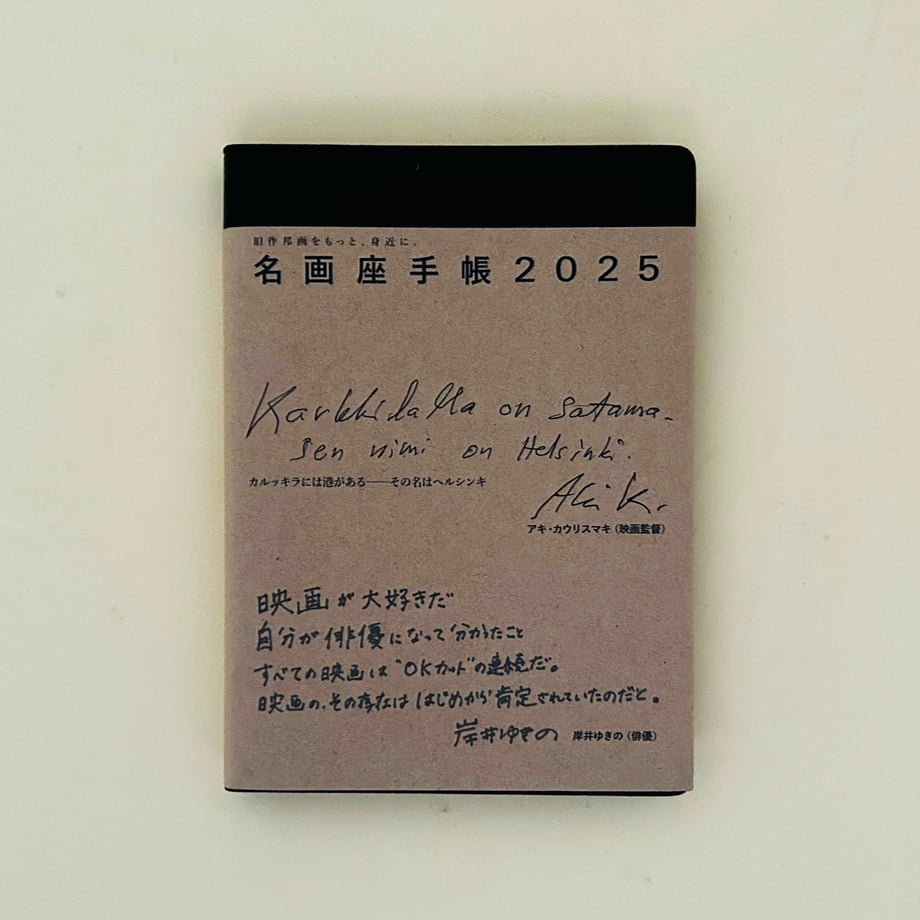 旧作邦画をもっと、身近に。
名画座手帳2025
Karkkilalla on satama-
sen nimi on Helsinki.
カルッキラには港がある──その名はヘルシンキ
Aki K.
アキ・カウリスマキ(映画監督)
映画が大好きだ
自分が俳優になって分かったこと
すべての映画は“OKカット”の連続だ。
映画の、その存在ははじめから肯定されていたのだと。
岸井ゆきの 岸井ゆきの(俳優)